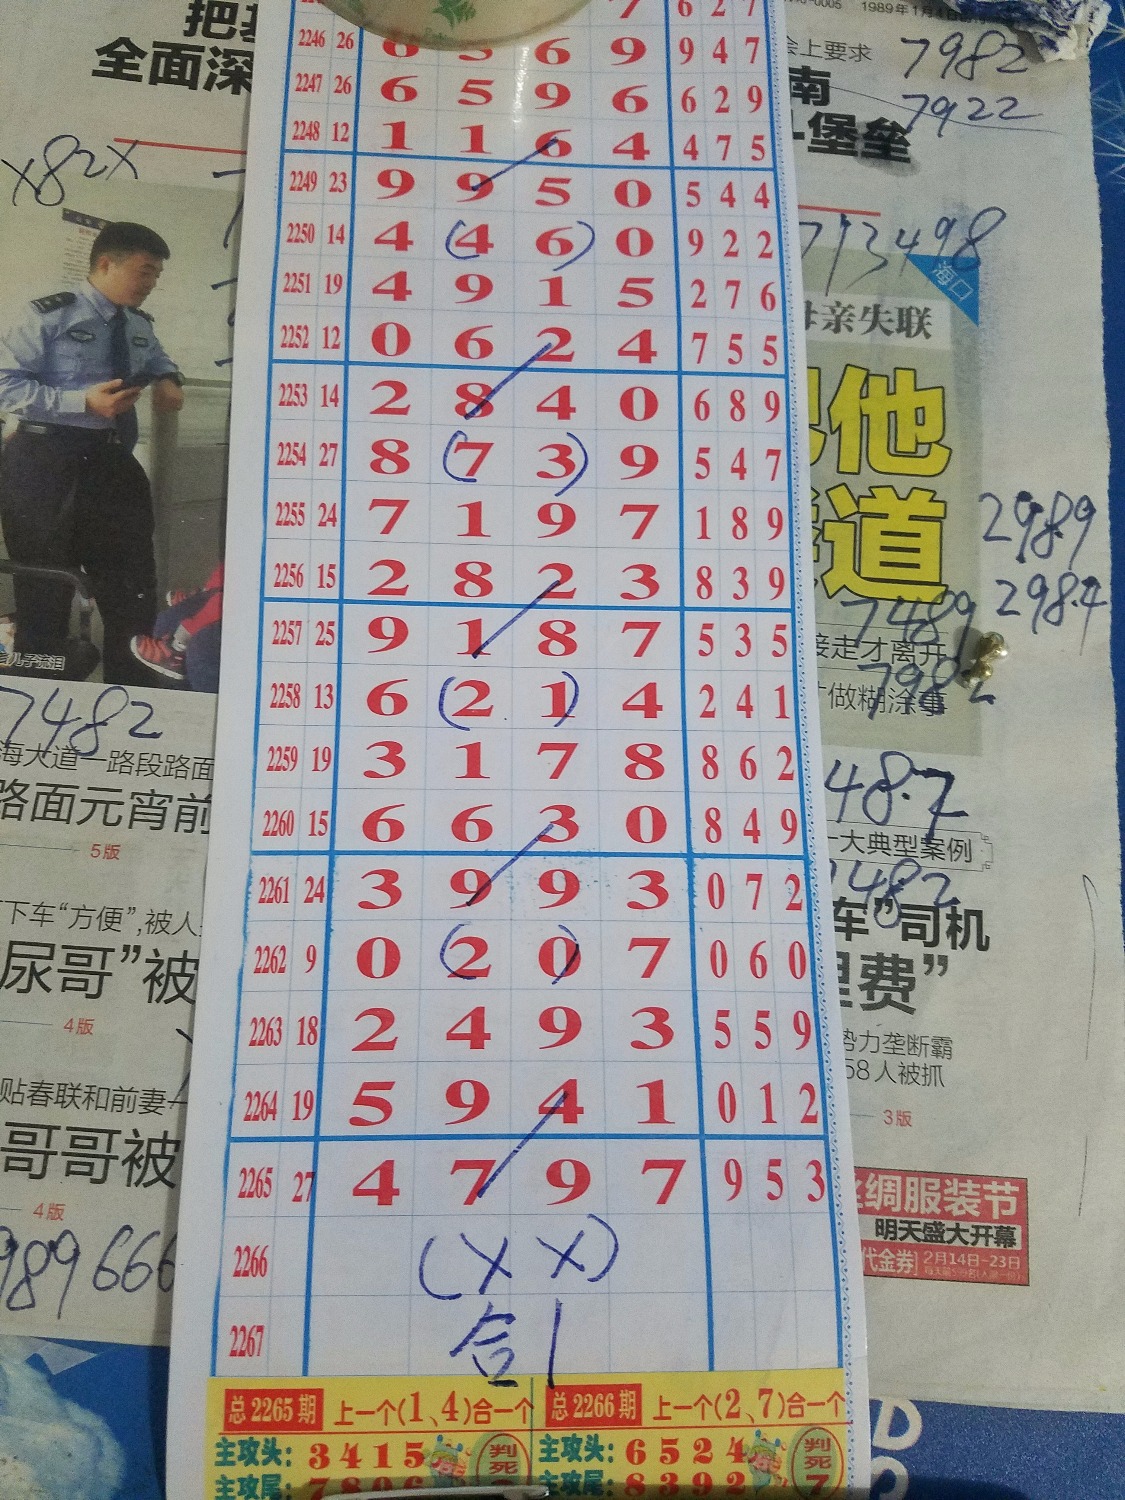 把
全面深
1989年1月
会上要求
7982
南
堡垒
7922
x82x
713498
海口
母亲失联
他
道
2989
2984
7489
接走才离开
7982
做糊涂事
7482
海大道一路段路面
路面元宵前
5版
48.7
十大典型案例
1482
下车“方便”,被人
尿哥”被
4版
车”司机
费”
势力垄断霸
58人被抓
3版
贴春联和前妻
哥哥被
4版
989666
绸服装节
明天盛大开幕
代金券 2月14日-23日
7 6 2 7
2246 26 6 5 6 9 9 4 7
2247 26 6 5 9 6 6 2 9
2248 12 1 1 6 4 4 7 5
2249 23 9 9 5 0 5 4 4
2250 14 4 (4 6) 0 9 2 2
2251 19 4 9 1 5 2 7 6
2252 12 0 6 2 4 7 5 5
2253 14 2 8 4 0 6 8 9
2254 27 8 (7 3) 9 5 4 7
2255 24 7 1 9 7 1 8 9
2256 15 2 8 2 3 8 3 9
2257 25 9 1 8 7 5 3 5
2258 13 6 (2 1) 4 2 4 1
2259 19 3 1 7 8 8 6 2
2260 15 6 6 3 0 8 4 9
2261 24 3 9 9 3 0 7 2
2262 9 0 (2 0) 7 0 6 0
2263 18 2 4 9 3 5 5 9
2264 19 5 9 4 1 0 1 2
2265 27 4 7 9 7 9 5 3
2266 (X X)
2267 合1
总2265期 上一个(1、4)合一个 总2266期 上一个(2、7)合一个
主攻头: 3415 判死 主攻头: 6524 判死7
主攻尾: 7806 主攻尾: 8392